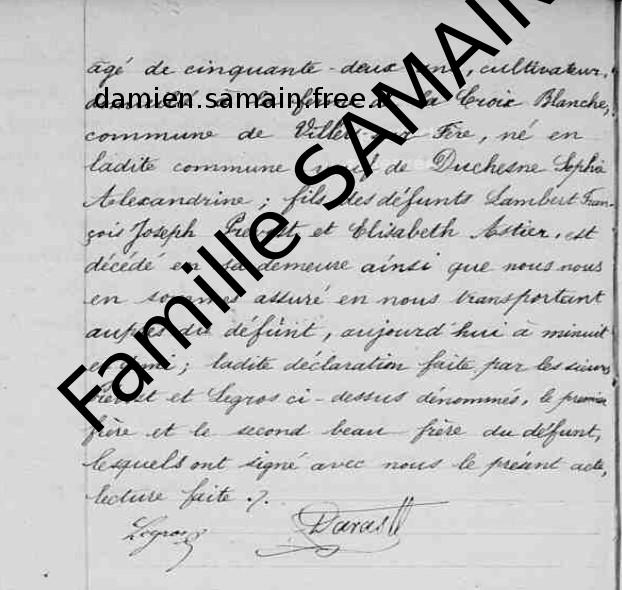 âgé de cinquante-deux ans, cultivateur,
domicilié à la ferme de la Croix Blanche,
damien.samain.free
commune de Villers-sur Fère, né en
ladite commune veuf de Duchesne Sophie
Alexandrine; fils des défunts Lambert Fran-
çois Joseph Prévost et Elisabeth Astier, est
décédé en sa demeure ainsi que nous nous
en sommes assuré en nous transportant
auprès du défunt, aujourd'hui à minuit
et demi; ladite déclaration faite par les sieurs
Prévost et Legros ci-dessus dénommés, le premier
frère et le second beau frère du défunt,
lesquels ont signé avec nous le présent acte,
lecture faite ./.
Legros Daras
Famille SAMAIN